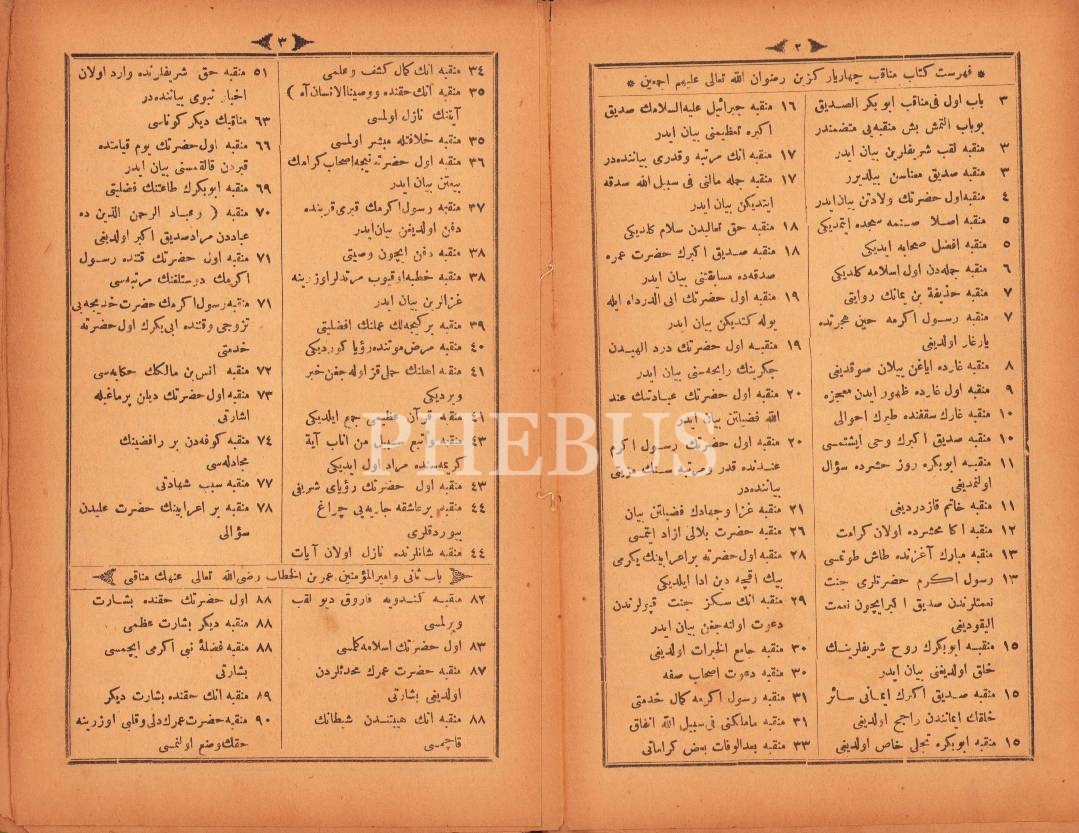 ٢
* فهرست كتاب مناقب چهاريار كزين رضوان الله تعالى عليهم اجمعين *
٣ باب اول فى مناقب ابو بكر الصديق
بوباب التمش بش منقبه يى متضمندر
٣ منقبه لقب شريفلرين بيان ايدر
٣ منقبه صديق معناسن بيلديرر
٤ منقبه اول حضرتك ولادتن بيان ايدر
٥ منقبه اصلا صنمه سجده ايتمديكى
٥ منقبه افضل صحابه ايديكى
٦ منقبه جمله دن اول اسلامه كلديكى
٧ منقبه حذيفة بن يمانك روايتى
٧ منقبه رسول اكرمه حين هجرتده
يارغار اولديغى
٨ منقبه غارده اياغن ييلان صوقديغى
٩ منقبه اول غارده ظهور ايدن معجزه
١٠ منقبه غارك سقفنده طيرك احوالى
١٠ منقبه صديق اكبرك وحى ايشتمسى
١١ منقبه ابوبكره روز حشرده سؤال
اولنمديغى
١١ منقبه خاتم قازدرديغى
١٢ منقبه اكا محشرده اولان كرامت
١٣ منقبه مبارك آغزنده طاش طوتمسى
١٣ رسول اكرم حضرتلرى جنت
نعمتلرندن صديق اكبر ايچون نعمت
اليقوديغى
١٥ منقبه ابوبكرك روح شريفلرينك
خلق اولديغنى بيان ايدر
١٥ منقبه صديق اكبرك ايمانى سائر
خلقك ايمانندن راجح اولديغى
١٥ منقبه ابوبكره تجلى خاص اولديغى
١٦ منقبه جبرائيل عليه السلامك صديق
اكبره تعظيمنى بيان ايدر
١٧ منقبه انك مرتبه وقدرى بياننده در
١٧ منقبه جمله مالنى فى سبيل الله صدقه
ايتديكن بيان ايدر
١٨ منقبه حق تعاليدن سلام كلديكى
١٨ منقبه صديق اكبرك حضرت عمره
صدقه ده مسابقتنى بيان ايدر
١٩ منقبه اول حضرتك ابى الدرداء ايله
يوله كتديكن بيان ايدر
١٩ منقبه اول حضرتك درد الهيدن
جكرينك رايحه سنى بيان ايدر
٢٠ منقبه اول حضرتك عبادتنك عند
الله فضيلتن بيان ايدر
٢٠ منقبه اول حضرتك رسول اكرم
عندنده قدر ومرتبه سنك مزيتى
بياننده در
٢١ منقبه غزا وجهادك فضيلتن بيان
٢٦ منقبه حضرت بلالى ازاد ايتمسى
٢٨ منقبه اول حضرته بر اعرابينك يكرمى
بيك اقچه دين ادا ايلديكى
٢٩ منقبه انك سكز جنت قپولرندن
دعوت اولنه جغن بيان ايدر
٣٠ منقبه جامع الخيرات اولديغى
٣٠ منقبه دعوت اصحاب صفه
٣١ منقبه رسول اكرمه كمال خدمتى
٣١ منقبه ماملكنى فى سبيل الله انفاق
٣٣ منقبه بعد الوفات بعض كراماتى
٣
٣٤ منقبه انك كمال كشف وعلمى
٣٥ منقبه انك حقنده ووصينا الانسان آه )
آيتنك نازل اولمسى
٣٥ منقبه خلافتله مبشر اولمسى
٣٦ منقبه اول حضرته نيجه اصحاب كرامك
بيعتن بيان ايدر
٣٧ منقبه رسول اكرمك قبرى قربنده
دفن اولديغن بيان ايدر
٣٨ منقبه دفن ايچون وصيتى
٣٨ منقبه خطبه اوقيوب مرتدلر اوزرينه
غزازين بيان ايدر
٣٩ منقبه بر كيجه لك عملنك افضليتى
٤٠ منقبه مرض موتنده رؤيا كورديكى
٤١ منقبه اهلنك حملى قز اوله جغن خبر
ويرديكى
٤١ منقبه قرآن عظيمى جمع ايلديكى
٤٣ منقبه واتبع سبيل من اناب آية
كريمه سنده مراد اول ايديكى
٤٣ منقبه اول حضرتك رؤياى شريفى
٤٤ منقبه بر عاشقه جاريه يى چراغ
بيوردقلرى
٤٤ منقبه شانلرنده نازل اولان آيات
٥١ منقبه حق شريفلرنده وارد اولان
اخبار نبوى بياننده در
٦٣ مناقبك ديكر كوناسى
٦٦ منقبه اول حضرتك يوم قيامتده
قبردن قالقمسنى بيان ايدر
٦٩ منقبه ابوبكرك طاعتنك فضليتى
٧٠ منقبه ( وعباد الرحمن الذين ده
عباددن مراد صديق اكبر اولديغى
٧١ منقبه اول حضرتك قتنده رسول
اكرمك دوستلغنك مرتبه سى
٧١ منقبه رسول اكرمك حضرت خديجه يى
تزوجى وقتنده ابى بكرك اول حضرته
خدمتى
٧٢ منقبه انس بن مالكك حكايه سى
٧٣ منقبه اول حضرتك ديلن پرماغيله
اشارتى
٧٤ منقبه كوفه دن بر رافضينك
مجادله سى
٧٧ منقبه سبب شهادتى
٧٨ منقبه بر اعرابينك حضرت عليدن
سؤالى
باب ثانى وامير المؤمنين عمر بن الخطاب رضى الله تعالى عنهك مناقبى
٨٢ منقبه كندويه فاروق ديو لقب
ويرلمسى
٨٣ اول حضرتك اسلامه كلمسى
٨٧ منقبه حضرت عمرك محدثلردن
اولديغى بشارتى
٨٨ منقبه انك هيبتندن شيطانك
قاچمسى
٨٨ اول حضرتك حقنده بشارت
٨٨ منقبه ديكر بشارت عظمى
٨٨ منقبه فضلهٔ نبى اكرمى ايچمسى
بشارتى
٨٩ منقبه انك حقنده بشارت ديكر
٩٠ منقبه حضرت عمرك دلى وقلبى اوزرينه
حقك وضع اولنمسى
PHEBUS